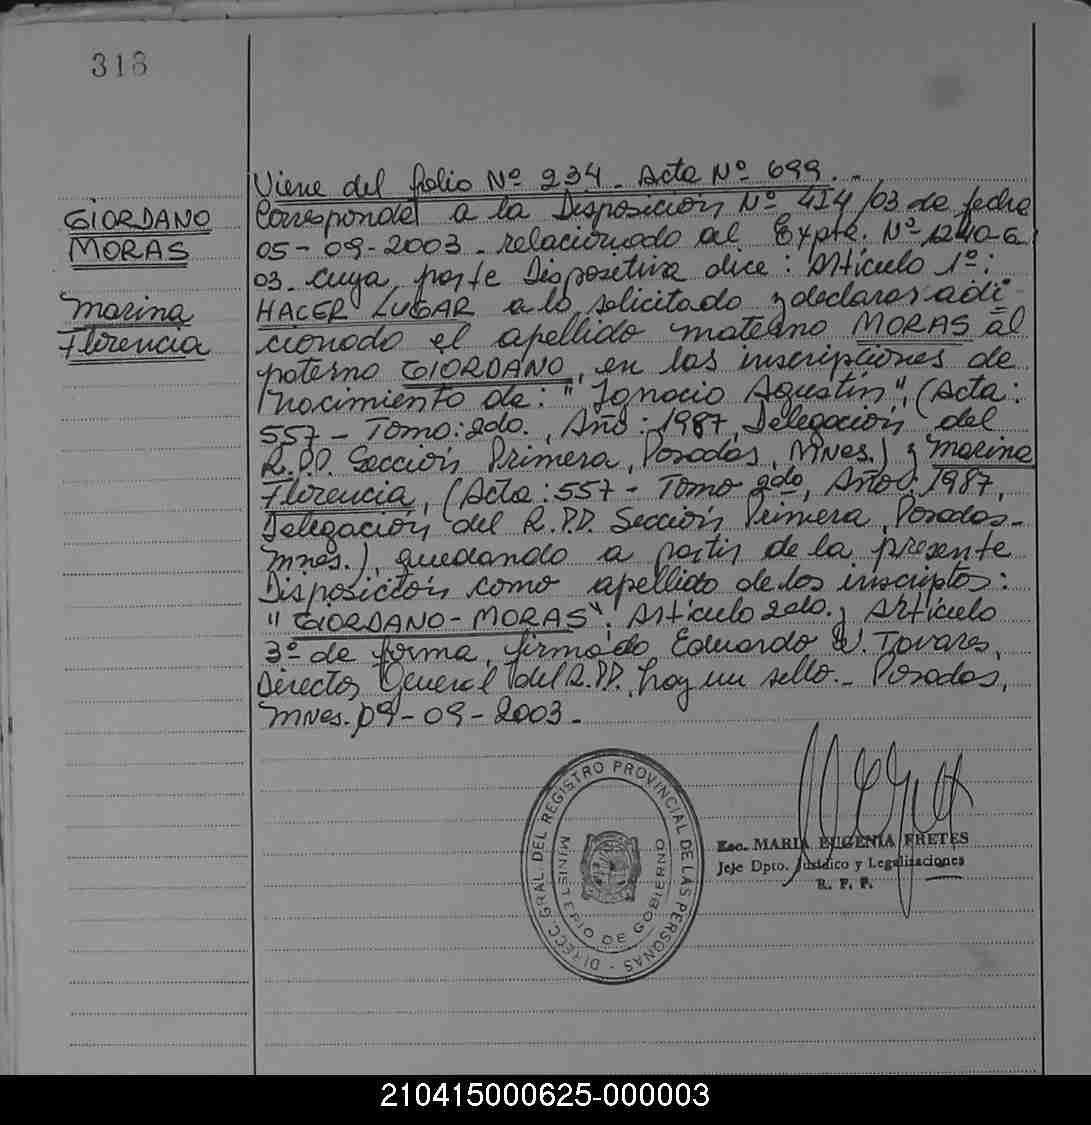 318
GIORDANO
MORAS
Marina
Florencia
Viene del folio Nº 234. Acta Nº 699.
Corresponde a la Disposición Nº 414/03 de fecha
05-09-2003. relacionado al Expte. Nº 1240-G
03. cuya parte Dispositiva dice: Artículo 1º:
HACER LUGAR a lo solicitado y declarar adi-
cionado el apellido materno MORAS al
paterno GIORDANO, en las inscripciones de
Nacimiento de: "Ignacio Agustín", (Acta:
557 - Tomo: 2do., Año: 1987, Delegación del
R.P.P. Sección Primera, Posadas, Mnes.) y Marina
Florencia, (Acta: 557 - Tomo 2do, Año: 1987,
Delegación del R.P.P. Sección Primera, Posadas-
Mnes.), quedando a partir de la presente
Disposición como apellido de los inscriptos:
"GIORDANO-MORAS". Artículo 2do. y Artículo
3º de forma, firmado Eduardo W. Tovares,
Director General del R.P.P. hay un sello.- Posadas,
Mnes. 09-09-2003.-
DIRECC. GRAL. DEL REGISTRO PROVINCIAL DE LAS PERSONAS -
MINISTERIO DE GOBIERNO
Esc. MARIA EUGENIA FRETES
Jefe Dpto. Jurídico y Legalizaciones
R. P. P.
210415000625-000003